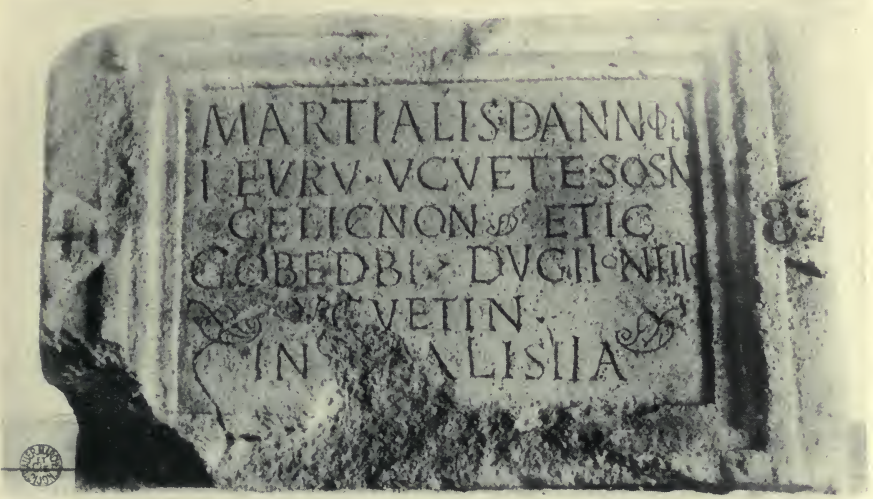 MARTIALIS·DANNOTALI
IEVRV·VCVETE·SOSIN
CELICNON ETIC
GOBEDBI·DVGIIONTIIO
VCVETIN·
IN ALISIIA